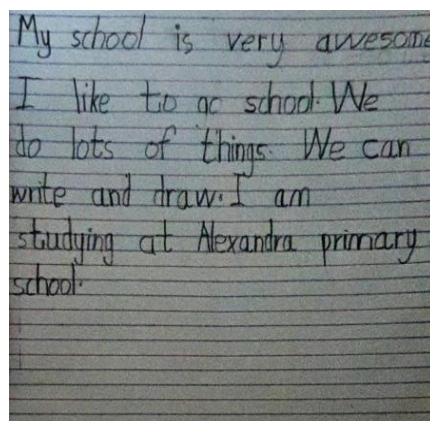 My school is very awesome
I like to go school. We
do lots of things. We can
write and draw. I am
studying at Alexandra primary
school.